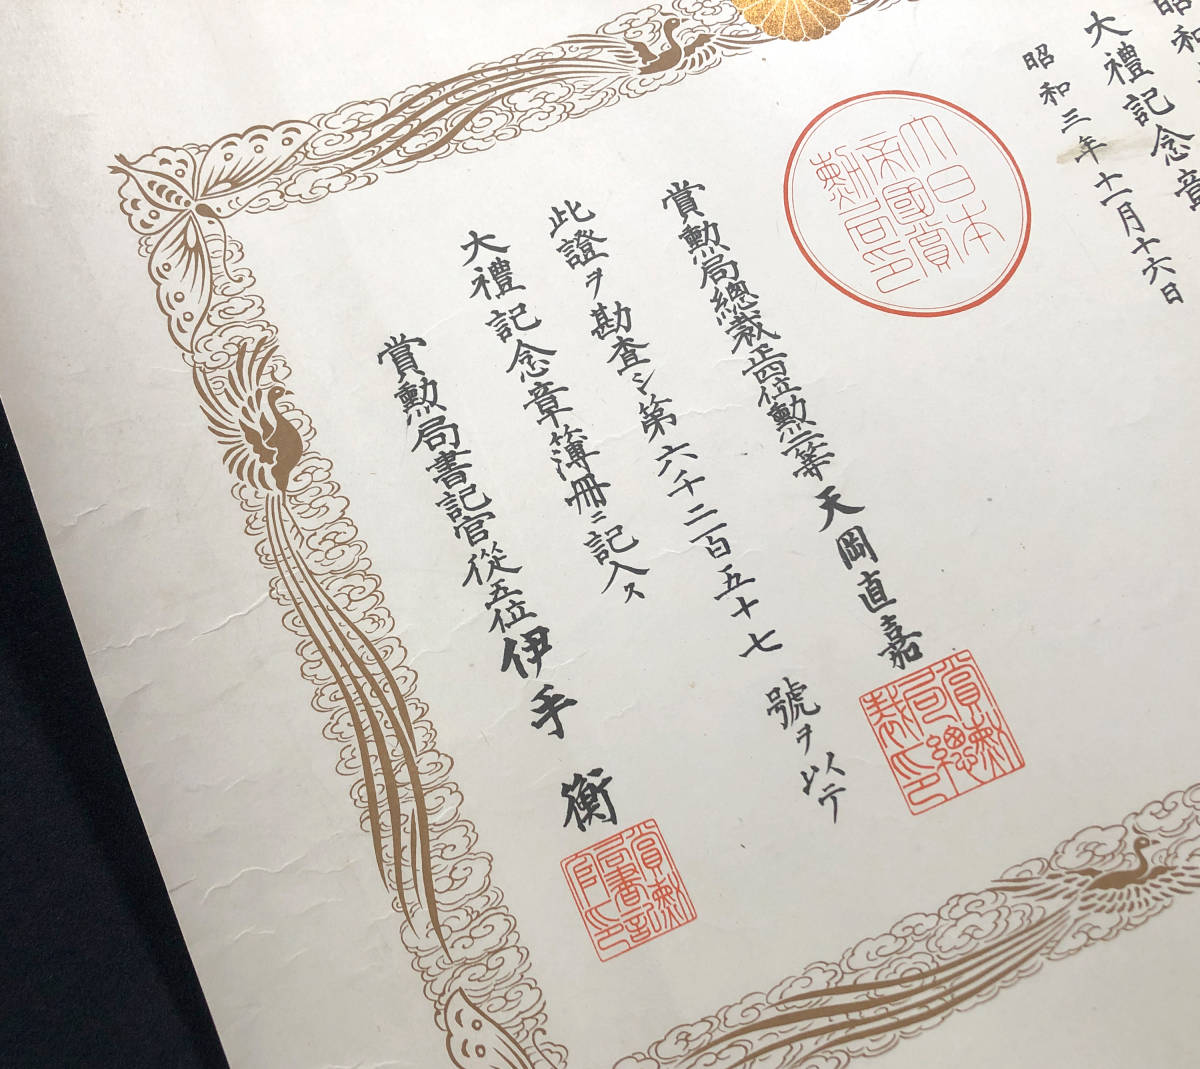 昭和
大禮記念章
昭和三年十一月十六日
大日本帝國賞勲局印
賞勲局總裁正四位勲二等天岡直嘉
賞勲局總裁印
此證ヲ勘査シ第六千二百五十七號ヲ以テ
大禮記念章簿冊ニ記入ス
賞勲局書記官從五位伊手衡
賞勲局書記官印